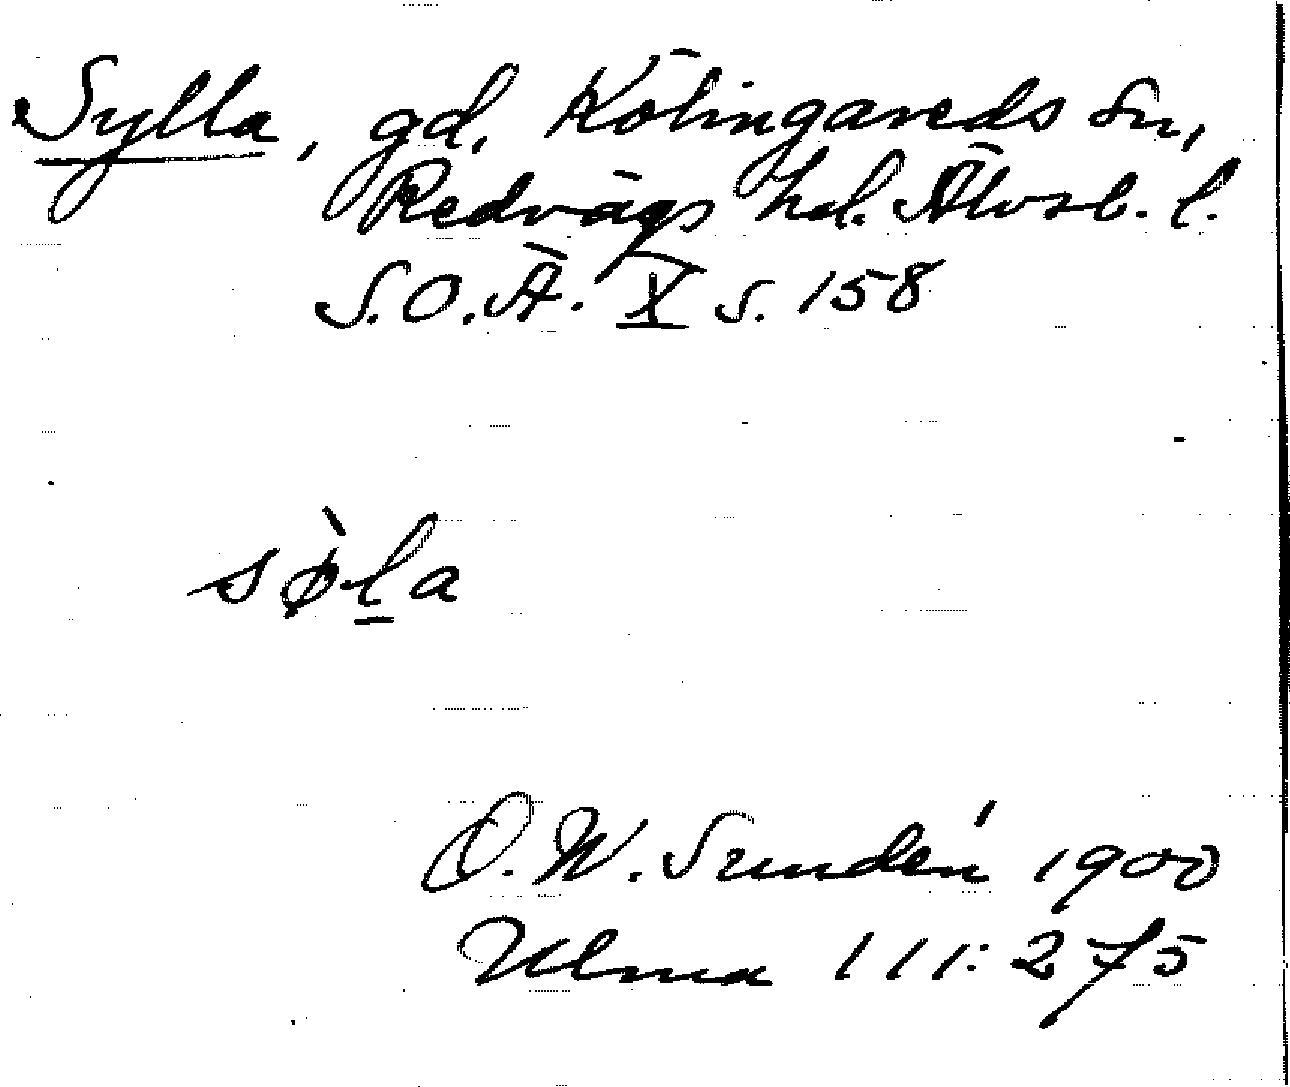 Sylla, gd, Kölingareds sn,
Redvägs hd. Älvsb. l.
S.O.Ä. X s. 158
sø̀l̲a
D. W. Sundén 1900
Ulma 111:275